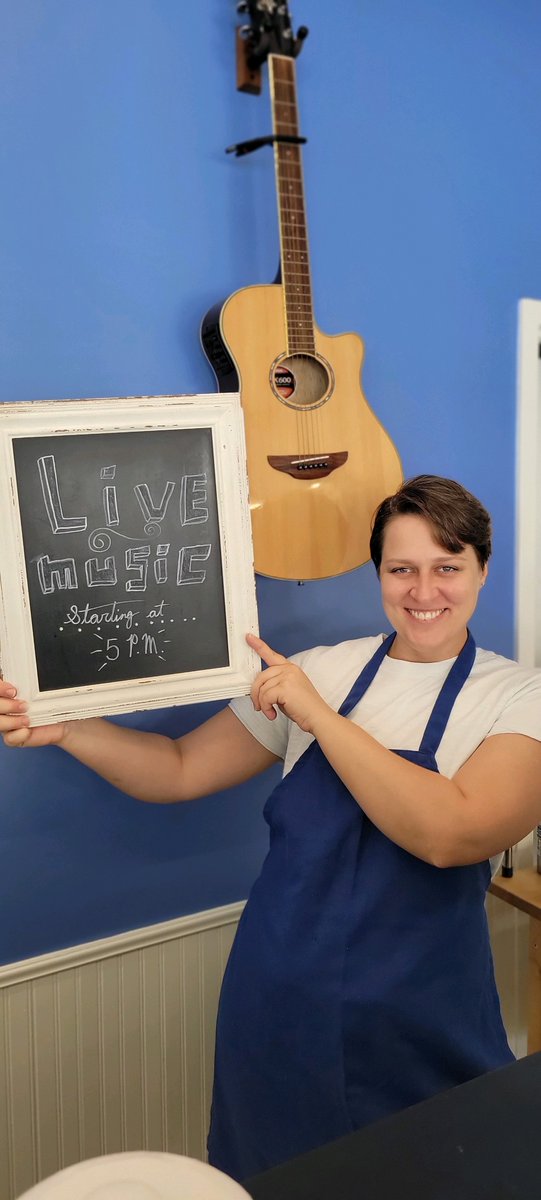 Live
music
Starting at....
5 P.M.
X600